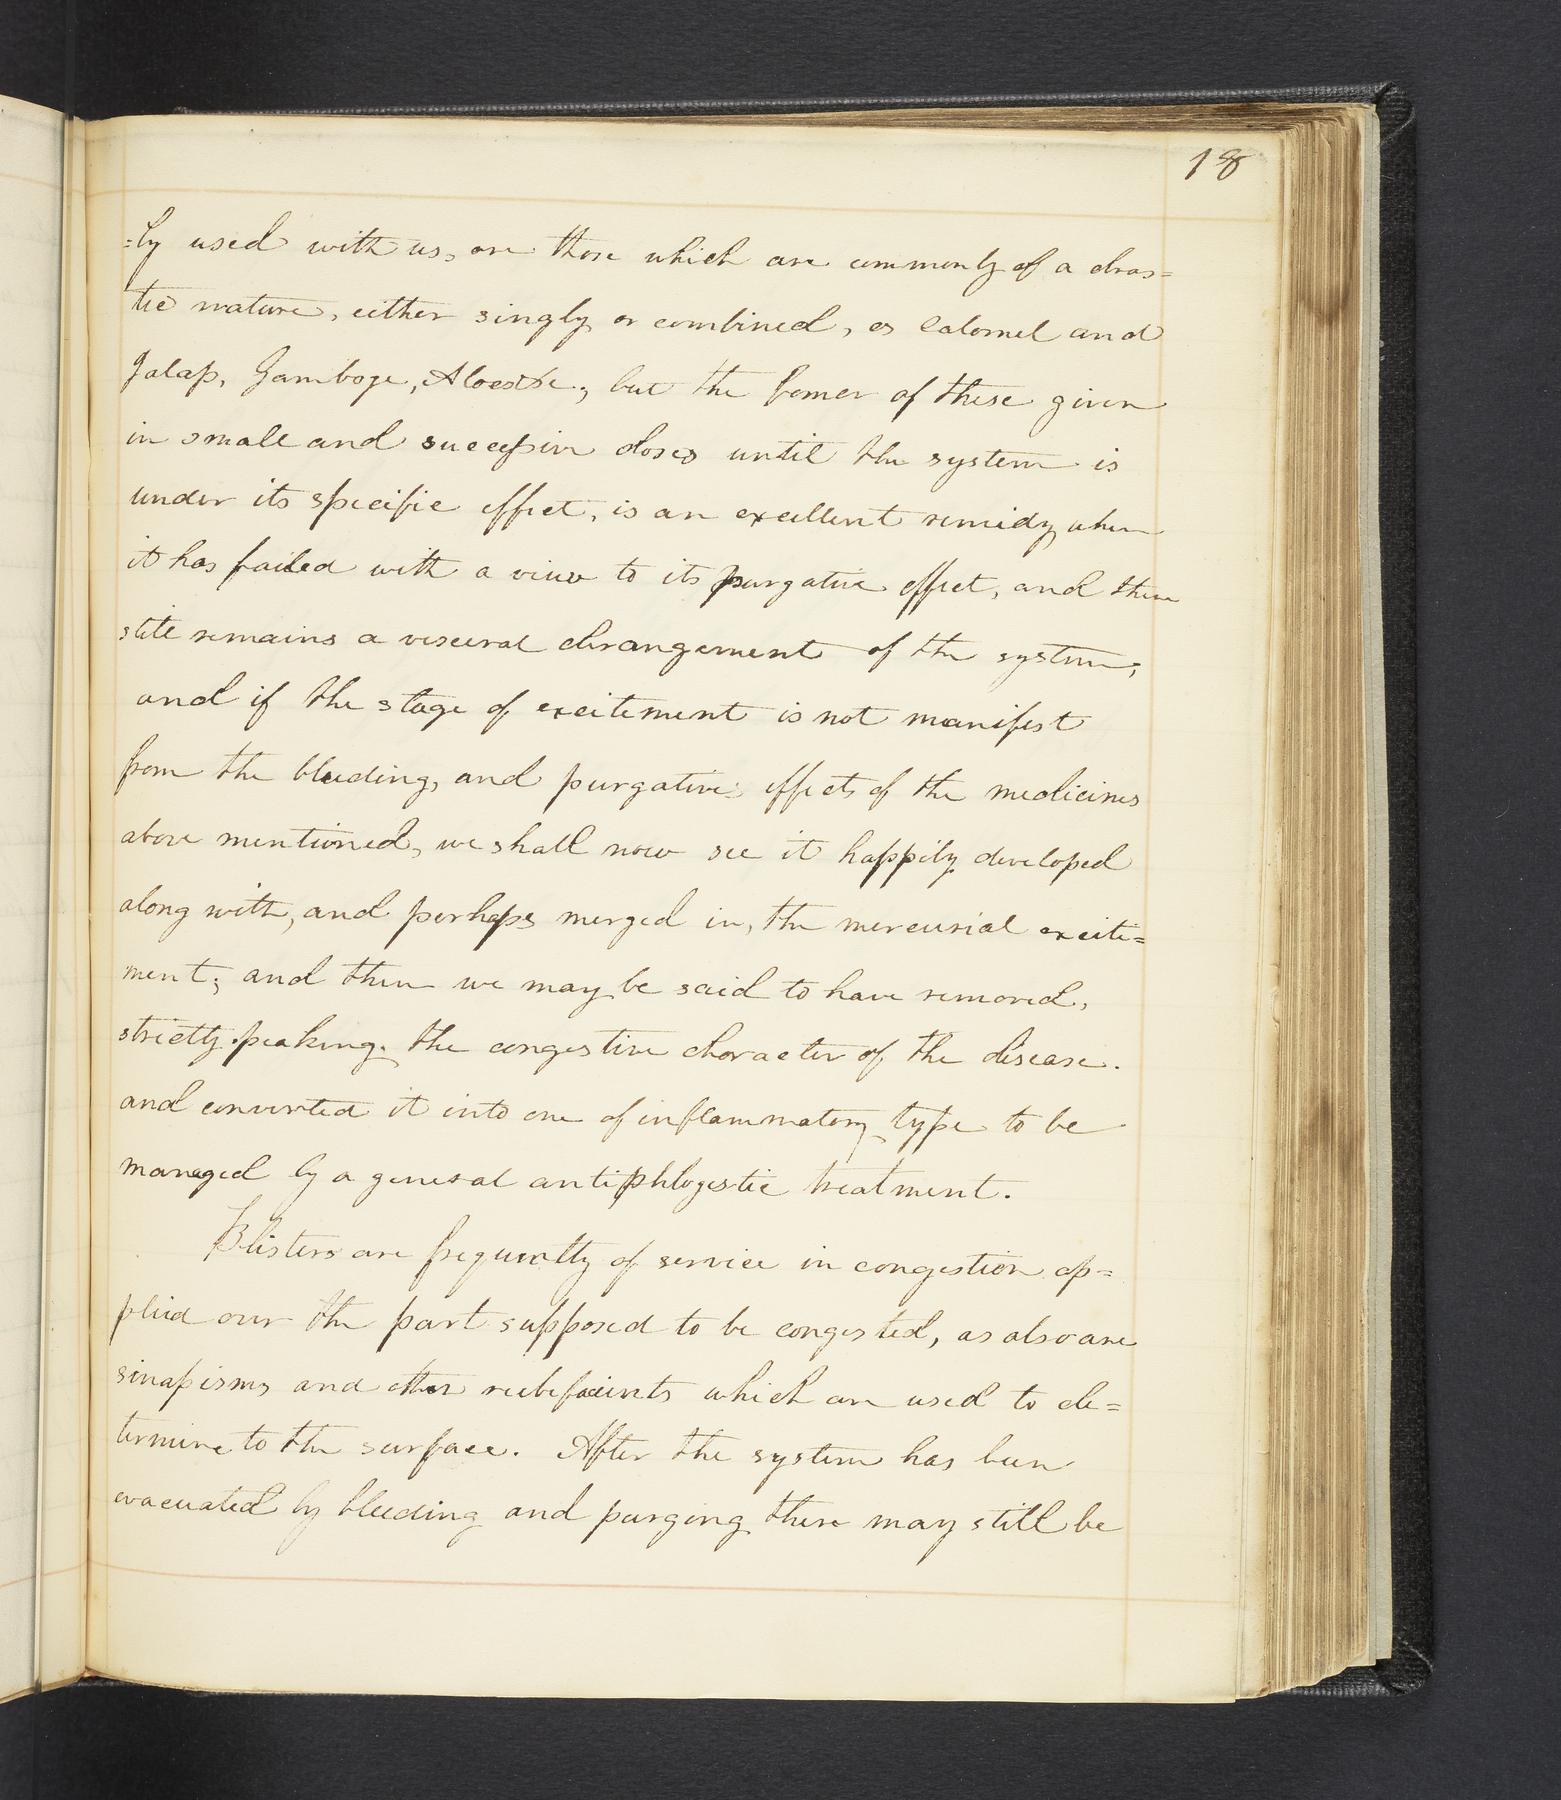 18
=ly used with us, are those which are commonly of a dras=
tic nature, either singly or combined, as Calomel and
Jalap, Gamboge, Aloes &c.; but the former of these given
in small and successive doses until the system is
under its specific effect, is an excellent remidy when
it has failed with a view to its purgative effect, and there
still remains a visceral derangement of the system;
and if the stage of excitement is not manifest
from the bleeding, and purgative effects of the medicines
above mentioned, we shall now see it happily developed
along with, and perhaps merged in, the mercurial excite=
ment; and then we may be said to have removed,
strictly speaking, the congestive character of the disease.
and converted it into one of inflammatory type to be
managed by a general antiphlogistic treatment.
Blisters are frequently of service in congestion ap=
plied over the part supposed to be congested, as also are
sinapisms and other rubefacients which are used to de=
termine to the surface. After the system has been
evacuated by bleeding and purging there may still be